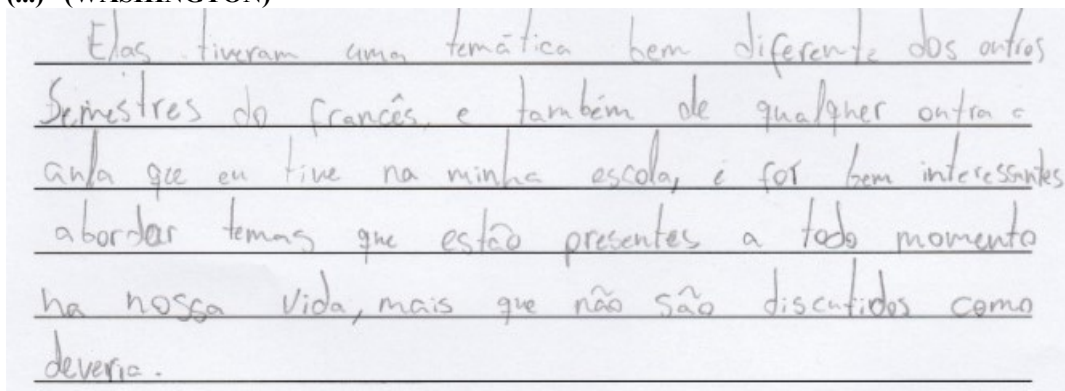 (...) (WASHINGTON)
Elas tiveram uma temática bem diferente dos outros
Semestres do francês, e também de qualquer outra
aula que eu tive na minha escola, e foi bem interessantes
abordar temas que estão presentes a todo momento
na nossa vida, mais que não são discutidos como
deveria.